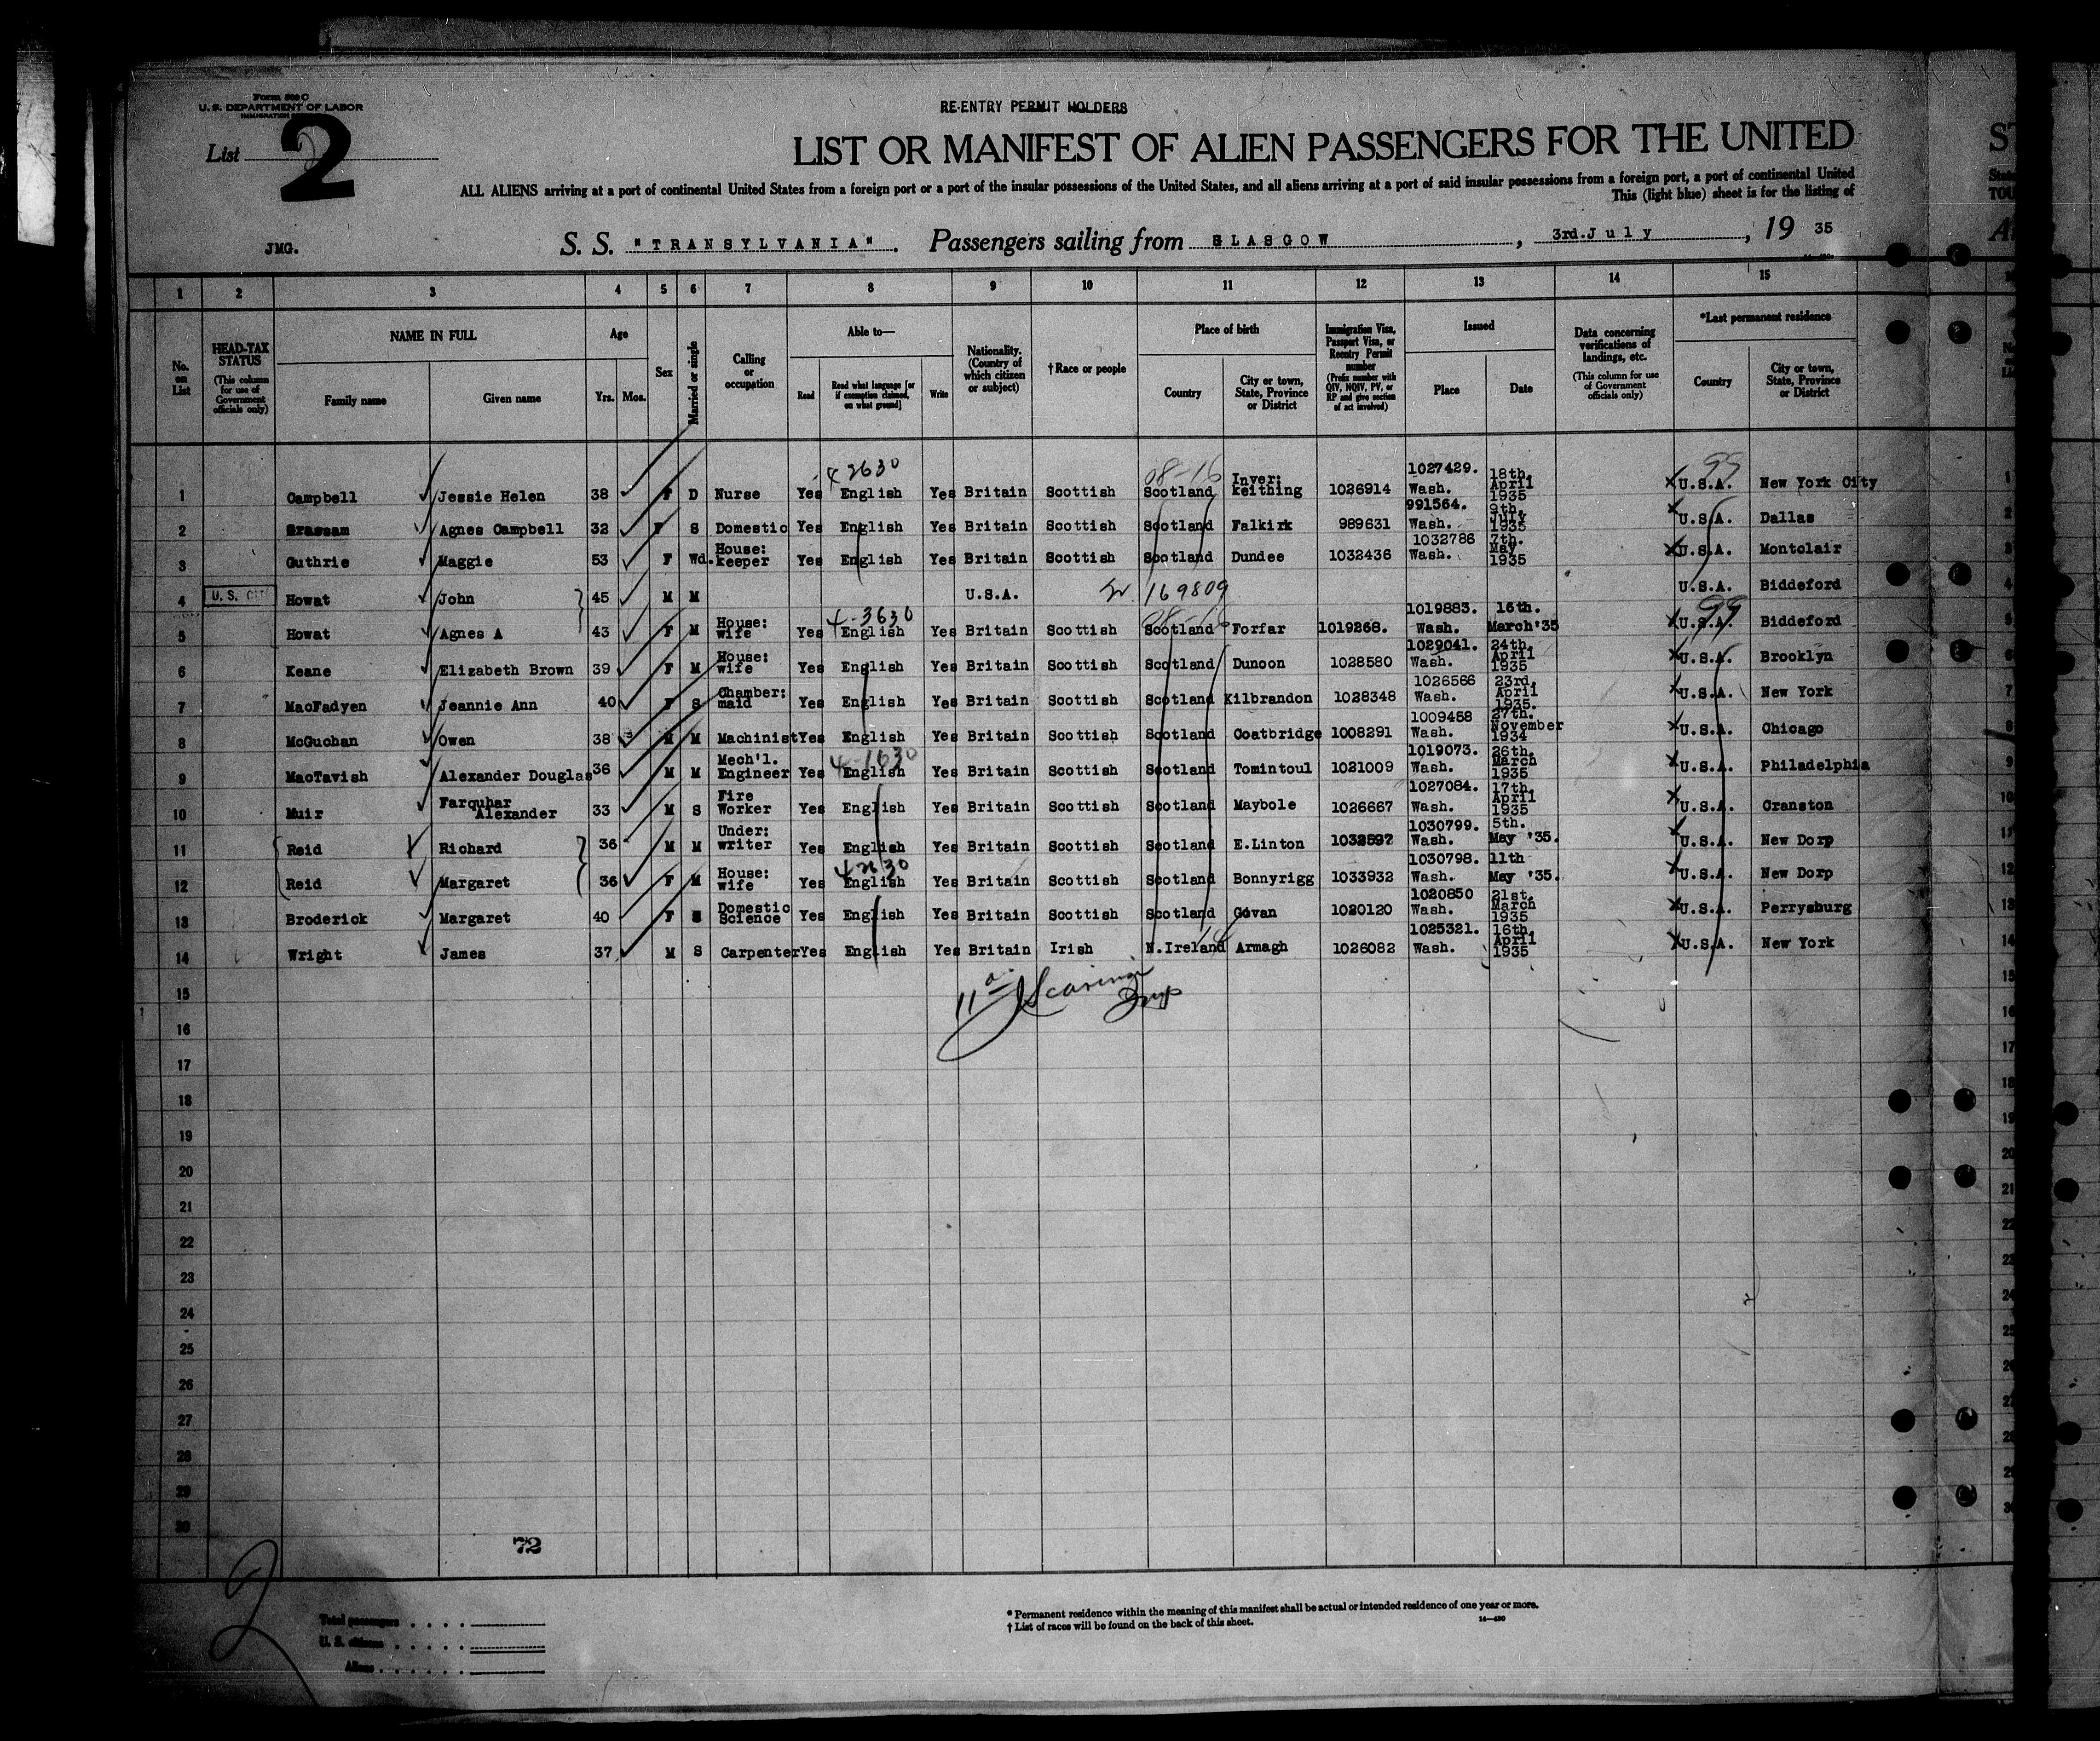 Form 500 C
U. S. DEPARTMENT OF LABOR
IMMIGRATION
RE-ENTRY PERMIT HOLDERS
List 2
LIST OR MANIFEST OF ALIEN PASSENGERS FOR THE UNITED
ALL ALIENS arriving at a port of continental United States from a foreign port or a port of the insular possessions of the United States, and all aliens arriving at a port of said insular possessions from a foreign port, a port of continental United
This (light blue) sheet is for the listing of
JMG. S. S. "TRANSYLVANIA". Passengers sailing from GLASGOW, 3rd.July, 19 35
1 2 3 4 5 6 7 8 9 10 11 12 13 14 15
No. on List
HEAD-TAX STATUS (This column for use of Government officials only)
NAME IN FULL
Family name Given name
Age
Yrs. Mos.
Sex
Married or single
Calling or occupation
Able to—
Read Read what language [or if exemption claimed, on what ground] Write
Nationality. (Country of which citizen or subject)
† Race or people
Place of birth
Country City or town, State, Province or District
Immigration Visa, Passport Visa, or Reentry Permit number (Prefix number with QIV, NQIV, PV, or RP and give section of act involved)
Issued
Place Date
Data concerning verifications of landings, etc. (This column for use of Government officials only)
*Last permanent residence
Country City or town, State, Province or District
4 2630 08-16 99
1 Campbell Jessie Helen 38 F D Nurse Yes English Yes Britain Scottish Scotland Inver: keithing 1026914 1027429. Wash. 18th. April 1935 U.S.A. New York City
2 Grassam Agnes Campbell 32 F S Domestic Yes English Yes Britain Scottish Scotland Falkirk 989631 991564. Wash. 9th. July 1935 U.S.A. Dallas
3 Guthrie Maggie 53 F Wd. House: keeper Yes English Yes Britain Scottish Scotland Dundee 1032436 1032786 Wash. 7th. May 1935 U.S.A. Montclair
4 U. S. CIT Howat John 45 M M U.S.A. 169809 U.S.A. Biddeford
4-3630 99
5 Howat Agnes A 43 F M House: wife Yes English Yes Britain Scottish Scotland Forfar 1019268. 1019883. Wash. 16th. March'35 U.S.A. Biddeford
6 Keane Elizabeth Brown 39 F M House: wife Yes English Yes Britain Scottish Scotland Dunoon 1028580 1029041. Wash. 24th. April 1935 U.S.A. Brooklyn
7 MacFadyen Jeannie Ann 40 F S Chamber: maid Yes English Yes Britain Scottish Scotland Kilbrandon 1028348 1026566 Wash. 23rd. April 1935. U.S.A. New York
8 McGuchan Owen 38 M M Machinist Yes English Yes Britain Scottish Scotland Coatbridge 1008291 1009458 Wash. 27th. November 1934 U.S.A. Chicago
4-1630
9 MacTavish Alexander Douglas 36 M M Mech'l. Engineer Yes English Yes Britain Scottish Scotland Tomintoul 1021009 1019073. Wash. 26th. March 1935 U.S.A. Philadelphia
10 Muir Farquhar Alexander 33 M S Fire Worker Yes English Yes Britain Scottish Scotland Maybole 1026667 1027084. Wash. 17th. April 1935 U.S.A. Cranston
11 Reid Richard 36 M M Under: writer Yes English Yes Britain Scottish Scotland E.Linton 1032597 1030799. Wash. 5th. May '35. U.S.A. New Dorp
4 2630
12 Reid Margaret 36 F M House: wife Yes English Yes Britain Scottish Scotland Bonnyrigg 1033932 1030798. Wash. 11th May '35. U.S.A. New Dorp
13 Broderick Margaret 40 F S Domestic Science Yes English Yes Britain Scottish Scotland Govan 1020120 1020850 Wash. 21st. March 1935 U.S.A. Perrysburg
14 Wright James 37 M S Carpenter Yes English Yes Britain Irish N.Ireland Armagh 1026082 1025321. Wash. 16th. April 1935 U.S.A. New York
15
16
17
18
19
20
21
22
23
24
25
26
27
28
29
30
72
2
Total passengers
U. S. citizens
Aliens
* Permanent residence within the meaning of this manifest shall be actual or intended residence of one year or more.
† List of races will be found on the back of this sheet.
14—430